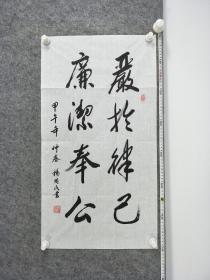 嚴於律己
廉潔奉公
甲午年仲春 楊